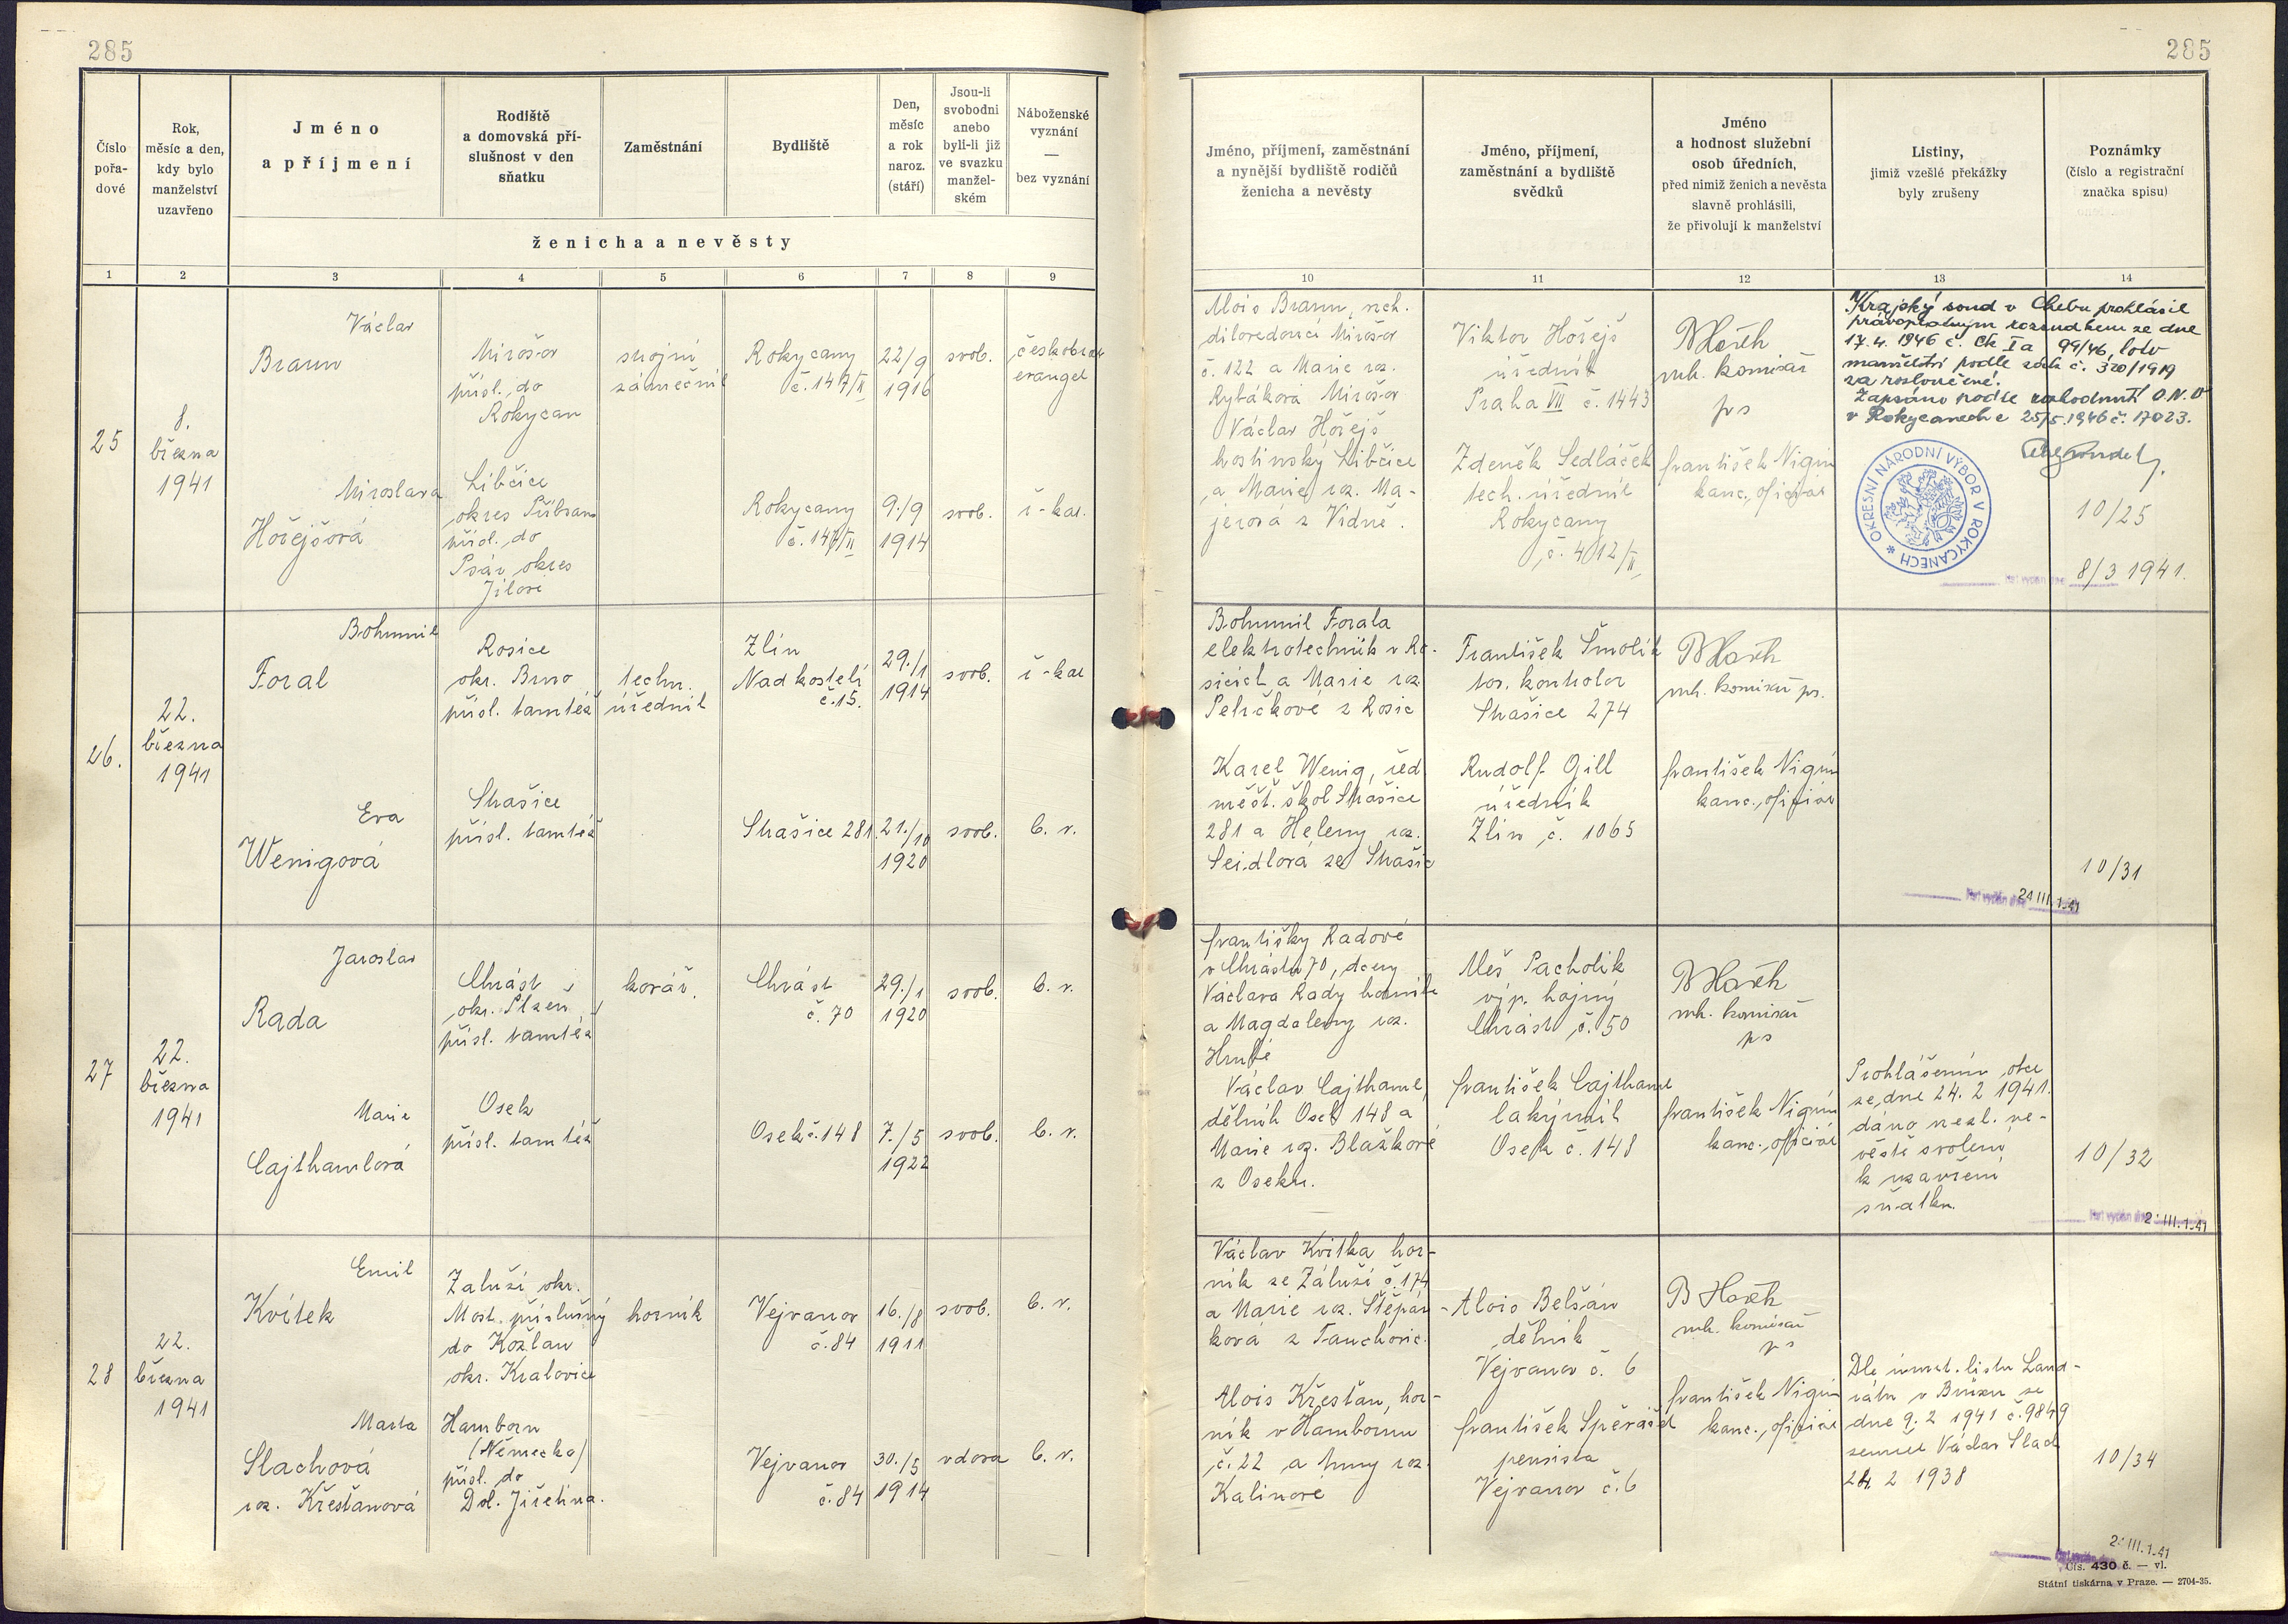 285
285
Číslo
pořa-
dové
Rok,
měsíc a den,
kdy bylo
manželství
uzavřeno
Jméno
a příjmení
Rodiště
a domovská pří-
slušnost v den
sňatku
Zaměstnání
Bydliště
Den,
měsíc
a rok
naroz.
(stáří)
Jsou-li
svobodni
anebo
byli-li již
ve svazku
manžel-
ském
Náboženské
vyznání
—
bez vyznání
ženicha a nevěsty
Jméno, příjmení, zaměstnání
a nynější bydliště rodičů
ženicha a nevěsty
Jméno, příjmení,
zaměstnání a bydliště
svědků
Jméno
a hodnost služební
osob úředních,
před nimiž ženich a nevěsta
slavně prohlásili,
že přivolují k manželství
Listiny,
jimiž vzešlé překážky
byly zrušeny
Poznámky
(číslo a registrační
značka spisu)
1 2 3 4 5 6 7 8 9 10 11 12 13 14
25
8.
března
1941
Václav
Braun
Mirošov
přísl. do
Rokycan
strojní
zámečník
Rokycany
č. 147/II
22/9
1916
svob.
českobrat
evangel
Miroslava
Hořejšová
Libčice
okres Příbram
přísl. do
Psár okres
Jílové
Rokycany
č. 147/II
9./9
1914
svob.
ř-kat.
Alois Braun,
Mirošov
č. 122 a Marie roz.
Rybáková Mirošov
Václav Hořejš
hostinský Libčice
a Marie roz. Ma-
jerová z Vídně.
Viktor Hořejš
úředník
Praha VII č. 1443
Zdeněk Sedláček
tech. úředník
Rokycany
č. 412/II
komisař
ps
František Nigrin
kanc. oficiál
Krajský soud v Chebu prohlásil
pravoplatným rozsudkem ze dne
17.4. 1946 č. Ck I a 99/46, toto
manželství podle zák. č. 320/1919
za rozloučené.
Zapsáno podle rozhodnutí O.N.V
v Rokycanech z 25/5. 1946 č. 17023.
OKRESNÍ NÁRODNÍ VÝBOR V ROKYCANECH
10/25
8/3 1941.
26.
22.
března
1941
Bohumil
Foral
Rosice
okr. Brno
přísl. tamtéž
techn.
úředník
Zlín
Nad kostelí
č. 15.
29./1
1914
svob.
ř-kat
Eva
Wenigová
Strašice
přísl. tamtéž
Strašice 281
21./10
1920
svob.
b. v.
Bohumil Forala
elektrotechnik v Ro-
sicích a Marie roz.
z Rosic
Karel Wenig, řed
měšť. škol Strašice
281 a Heleny roz.
Seidlová ze Strašic
František Šmolík
kontrolor
Strašice 274
Rudolf Gill
úředník
Zlín č. 1065
komisař ps.
František Nigrin
kanc. oficiál
10/31
24 III. 1.41
27
22.
března
1941
Jaroslav
Rada
Chrást
okr. Plzeň
přísl. tamtéž
kovář.
Chrást
č. 70
29./1
1920
svob.
b. v.
Marie
Cajthamlová
Osek
přísl. tamtéž
Osek č. 148
7./5
1922
svob.
b. v.
Františky Radové
v Chrástu 70, dcery
Václava Rady horníka
a Magdaleny roz.
Hrubé
Václav Cajthaml,
dělník Osek 148 a
Marie roz. Blažkové
z Oseku.
Aleš Pacholík
výp. hajný
Chrást č. 50
František Cajthaml
lakýrník
Osek č. 148
komisař
ps
František Nigrin
kanc. oficiál
Prohlášením otce
ze dne 24. 2 1941.
dáno nezl. ne-
věstě svolení
k uzavření
sňatku.
10/32
28
22.
března
1941
Emil
Kvítek
Zaluží okr.
Most. příslušný
do Kožlan
okr. Kralovice
horník
Vejvanov
č. 84
16./8
1911
svob.
b. v.
Marta
Slachová
roz. Křesťanová
Hamborn
(Německo)
přísl. do
Dol. Jiřetína.
Vejvanov
č. 84
30./5
1914
vdova
b. v.
Václav Kvítka hor-
ník ze Záluží č. 174
a Marie roz. Štěpán-
ková z Tauchovic.
Alois Křesťan, hor-
ník v Hambornu
č. 22 a Anny roz.
Kalinové
Alois Belšán
dělník
Vejvanov č. 6
František Spěváček
pensista
Vejvanov č. 6
komisař
ps
František Nigrin
kanc. oficiál
Dle úmrt. listu Land-
rátu v Brüxu ze
dne 9. 2 1941 č. 9849
zemřel Václav Slach
24. 2 1938
10/34
Čís. 430 č. — vl.
Státní tiskárna v Praze. — 2704-35.